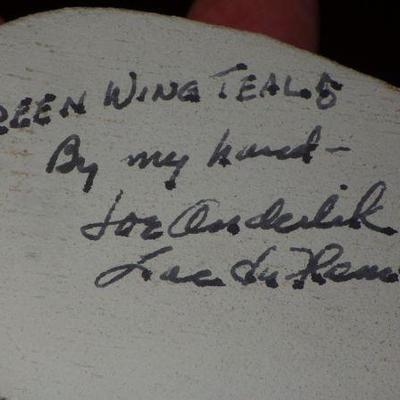 REEN WING TEALS
By my hand -
Joe Onderlik
Lac du Flam